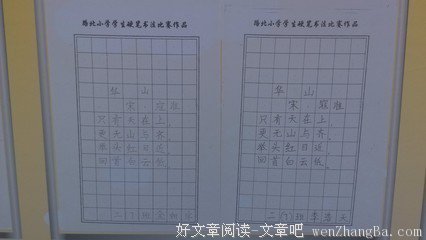 路北小学学生硬笔书法比赛作品
华山
宋·寇准
只有天在上,
更无山与齐。
举头红日近,
回首白云低。
二(7)班
路北小学学生硬笔书法比赛作品
华山
宋·寇准
只有天在上,
更无山与齐。
举头红日近,
回首白云低。
二(7)班李浩天
好文章阅读-文章吧 wenZhangBa.com